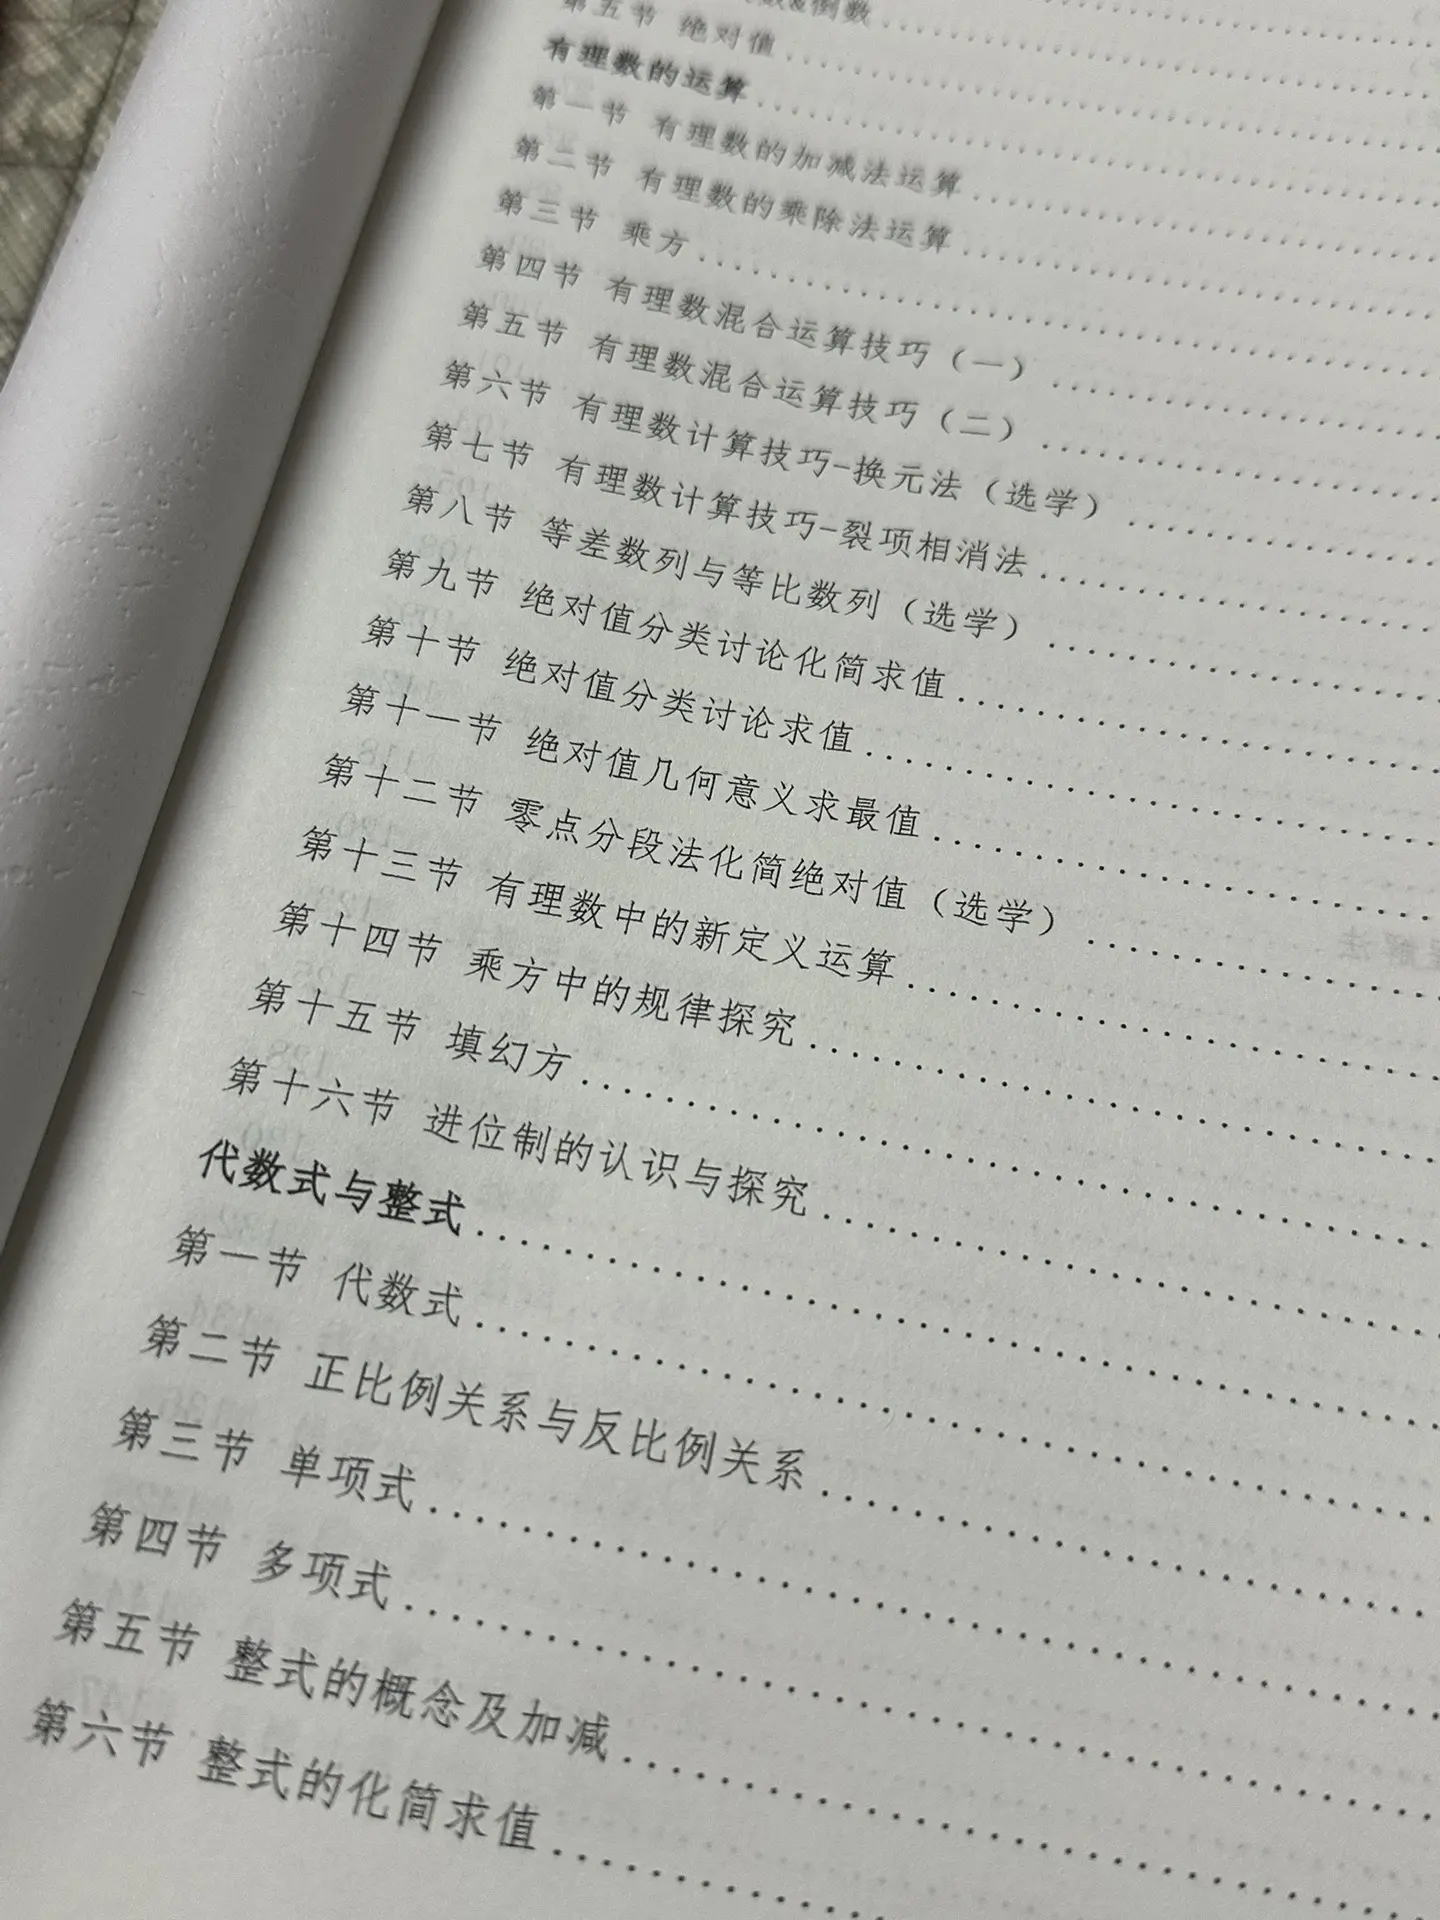 倒数
第五节 绝对值
有理数的运算
第一节 有理数的加减法运算
第二节 有理数的乘除法运算
第三节 乘方
第四节 有理数混合运算技巧（一）
第五节 有理数混合运算技巧（二）
第六节 有理数计算技巧-换元法（选学）
第七节 有理数计算技巧-裂项相消法
第八节 等差数列与等比数列（选学）
第九节 绝对值分类讨论化简求值
第十节 绝对值分类讨论求值
第十一节 绝对值几何意义求最值
第十二节 零点分段法化简绝对值（选学）
第十三节 有理数中的新定义运算
第十四节 乘方中的规律探究
第十五节 填幻方
第十六节 进位制的认识与探究
代数式与整式
第一节 代数式
第二节 正比例关系与反比例关系
第三节 单项式
第四节 多项式
第五节 整式的概念及加减
第六节 整式的化简求值